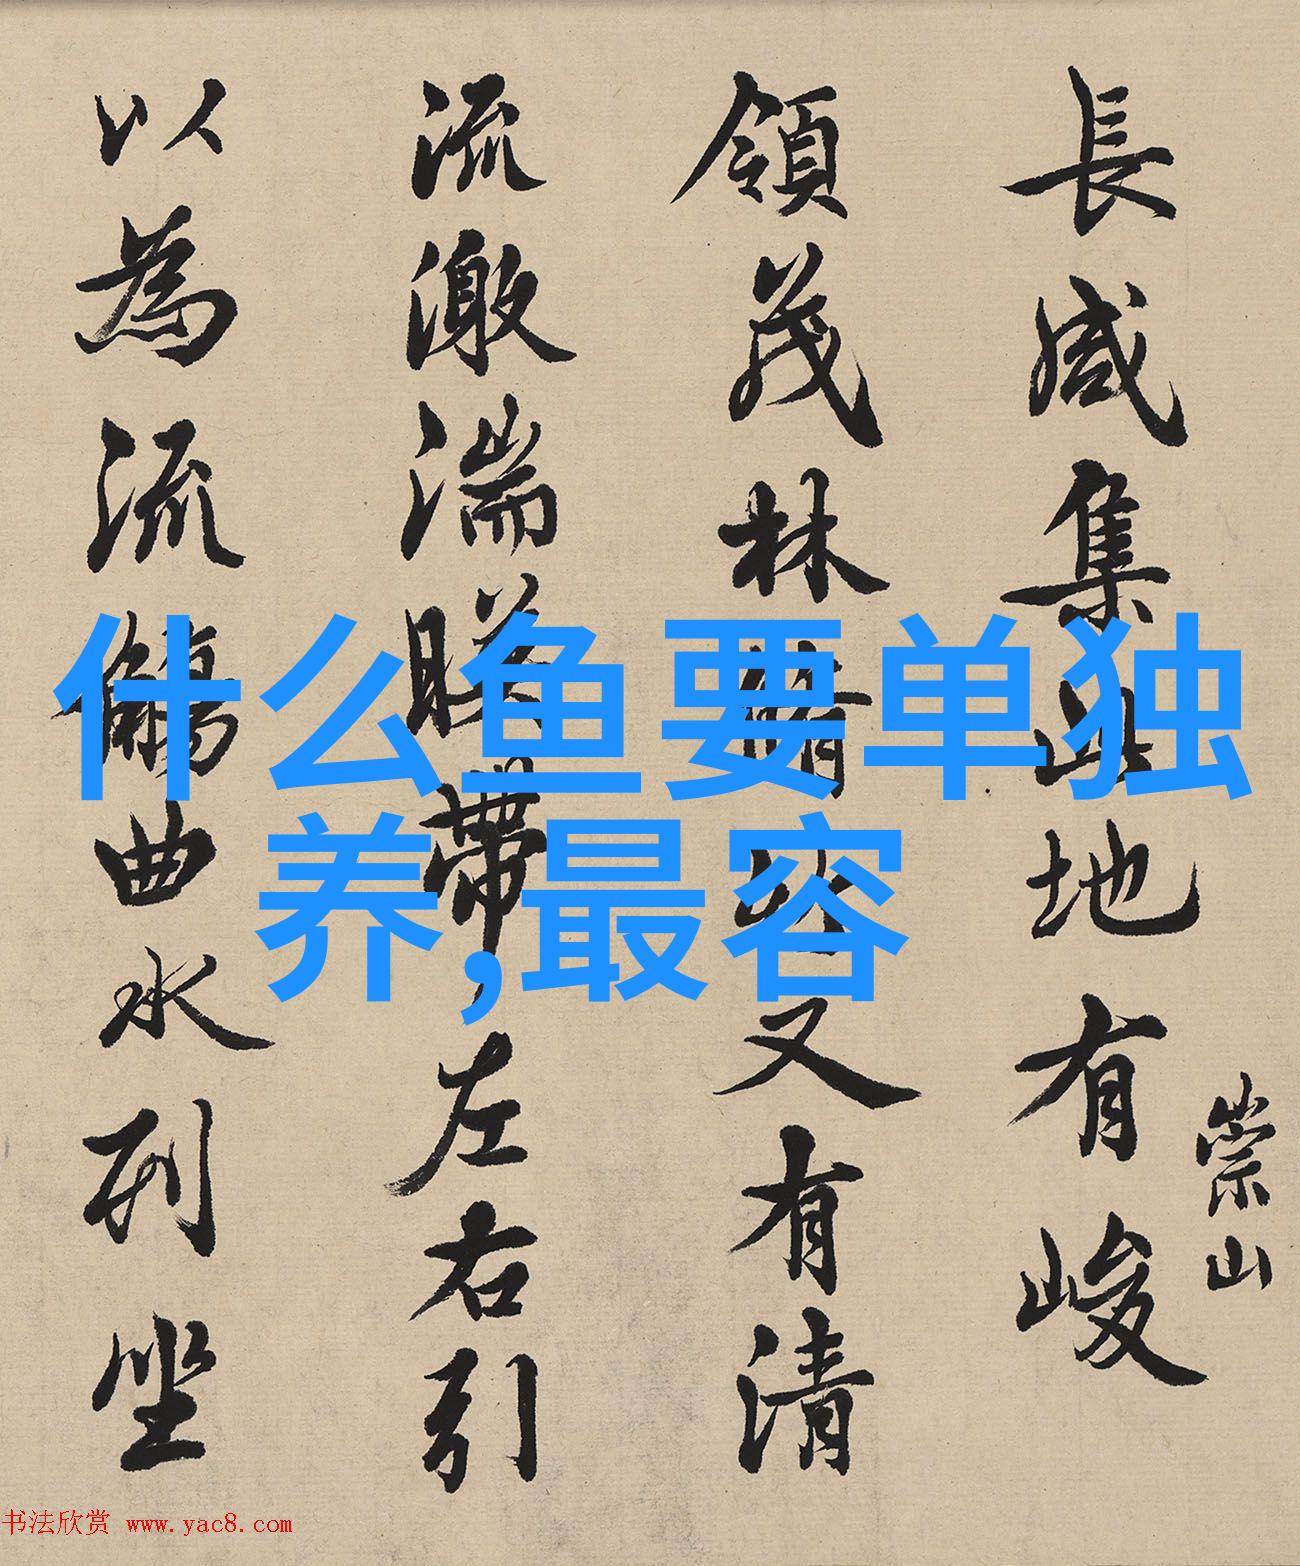 長咸集此地有峻
崇山
領茂林脩竹又有清
流激湍暎帶左右引
以為流觴曲水列坐
什么鱼要单独
养,最容
书法欣赏 www.yac8.com